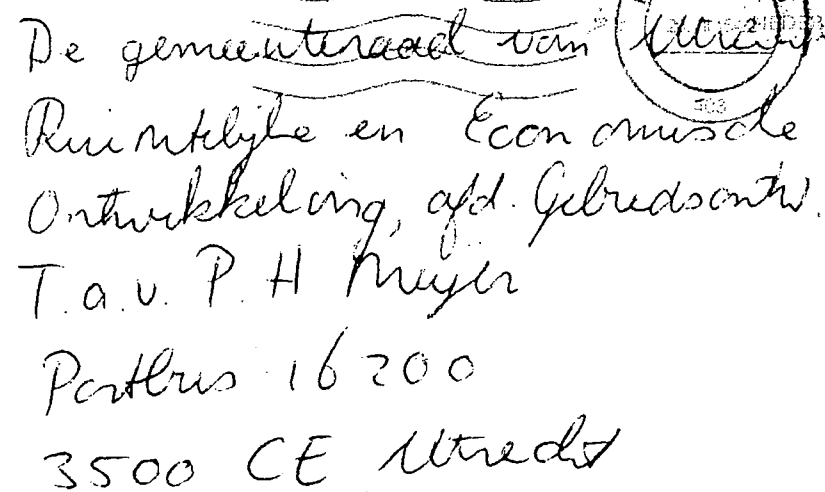 De gemeenteraad van Utrecht
Ruimtelijke en Economische
Ontwikkeling, afd. Gebiedsontw.
T.a.v. P.H Meyer
Postbus 16200
3500 CE Utrecht